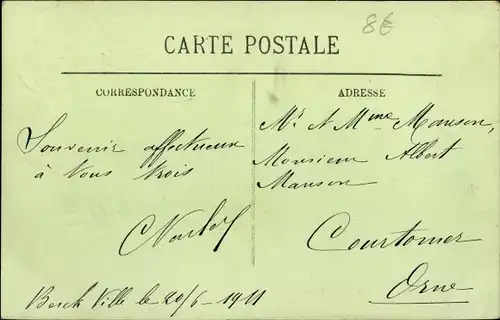 8€
CARTE POSTALE
CORRESPONDANCE
ADRESSE
Souvenir affectueux
à vous trois
Berck Ville le 20/6 - 1911
Mr et Mme Manson,
Monsieur Albert
Manson
Courtomer
Orne